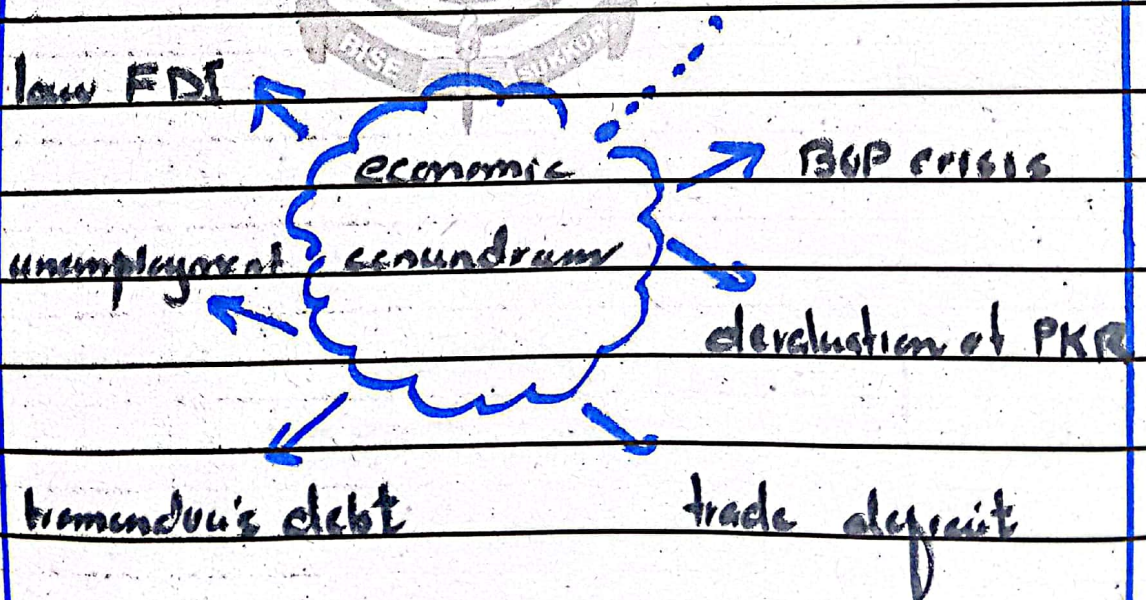 BISE SUKKUR
low FDI
economic
BOP crisis
unemployment
conundrum
devaluation of PKR
tremendou's debt
trade deficit